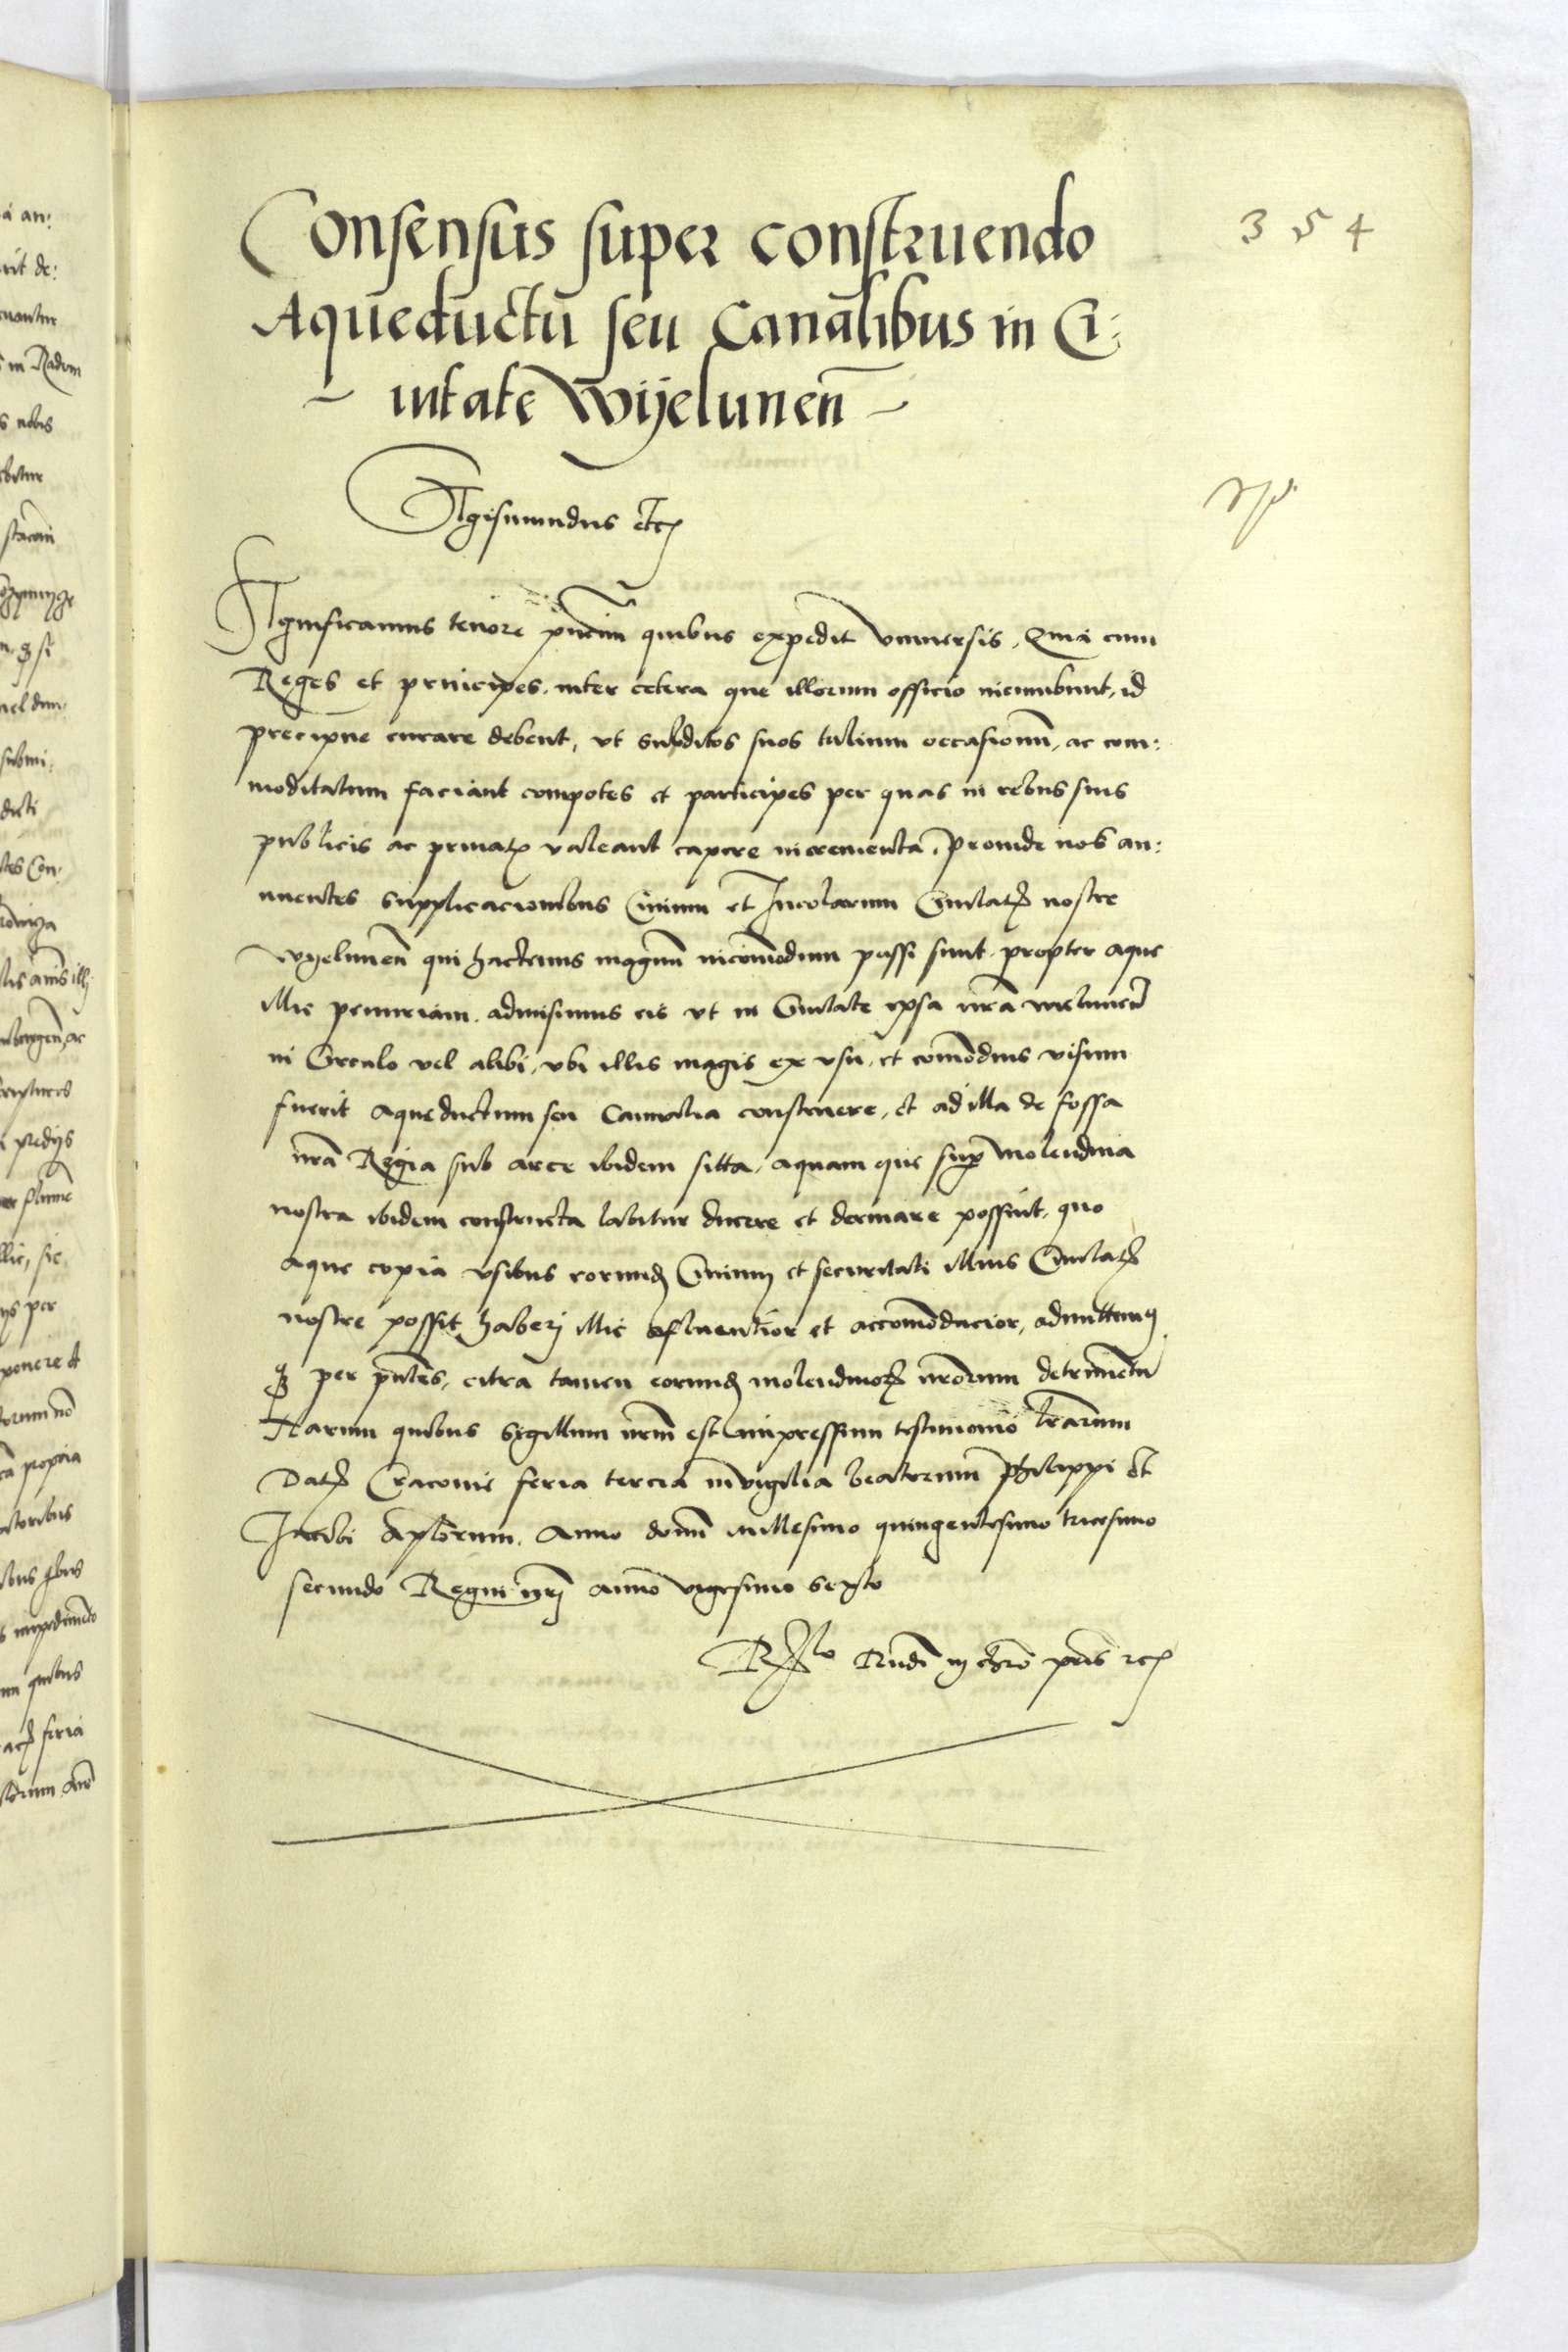 354
Consensus super construendo
Aqueductu seu Canalibus in Ci:
uitate Wyelunen̄
Sigismundus etcꝭ
Significamus tenore pn̄cium quibus expedit vniuersis. Quia cum
Reges et principes. inter cetera que illorum officio incumbunt, id
precipue curare debent, vt subditos suos talium occasionum, ac com:
moditatum faciant compotes et participes per quas in rebus suis
publicis ac priuatꝭ valeant capere incrementa. Proinde nos an:
nuentes supplicacionibus Ciuium et Incolarum Ciuitatꝭ nostre
wyelunen̄ qui hactenus magnum incōmodum passi sunt propter aque
illic penuriam. admisimus eis vt in Ciuitate ipsa nr̄a vielunen̄
in Circulo vel alibi, vbi illis magis ex vsu, et com̄odius visum
fuerit aqueductum seu Cannalia construere, et ad illa de fossa
nr̄a Regia sub arce ibidem sitta, aquam que sup̄ molendina
nostra ibidem constructa labitur ducere et deriuare possint, quo
aque copia vsibus eorundꝭ Ciuium et securitati illius Ciuitatꝭ
nostre possit haberj illic afluentior et accom̄odacior, admittimꝰ
qꝫ per pn̄tes, citra tamen eorundꝭ molendinorꝭ nr̄orum detrimentū
Harum quibus sigillum nr̄m est impressum testimonio lr̄arum
Datꝭ Cracouie feria tercia in vigilia beatorum Philippi et
Iacobi Apl̄orum. Anno domī millesimo quingentesimo tricesimo
secundo Regni nr̄j anno vigesimo sexto
R̄do Rndi in chr̄o pr̄is etcꝭ